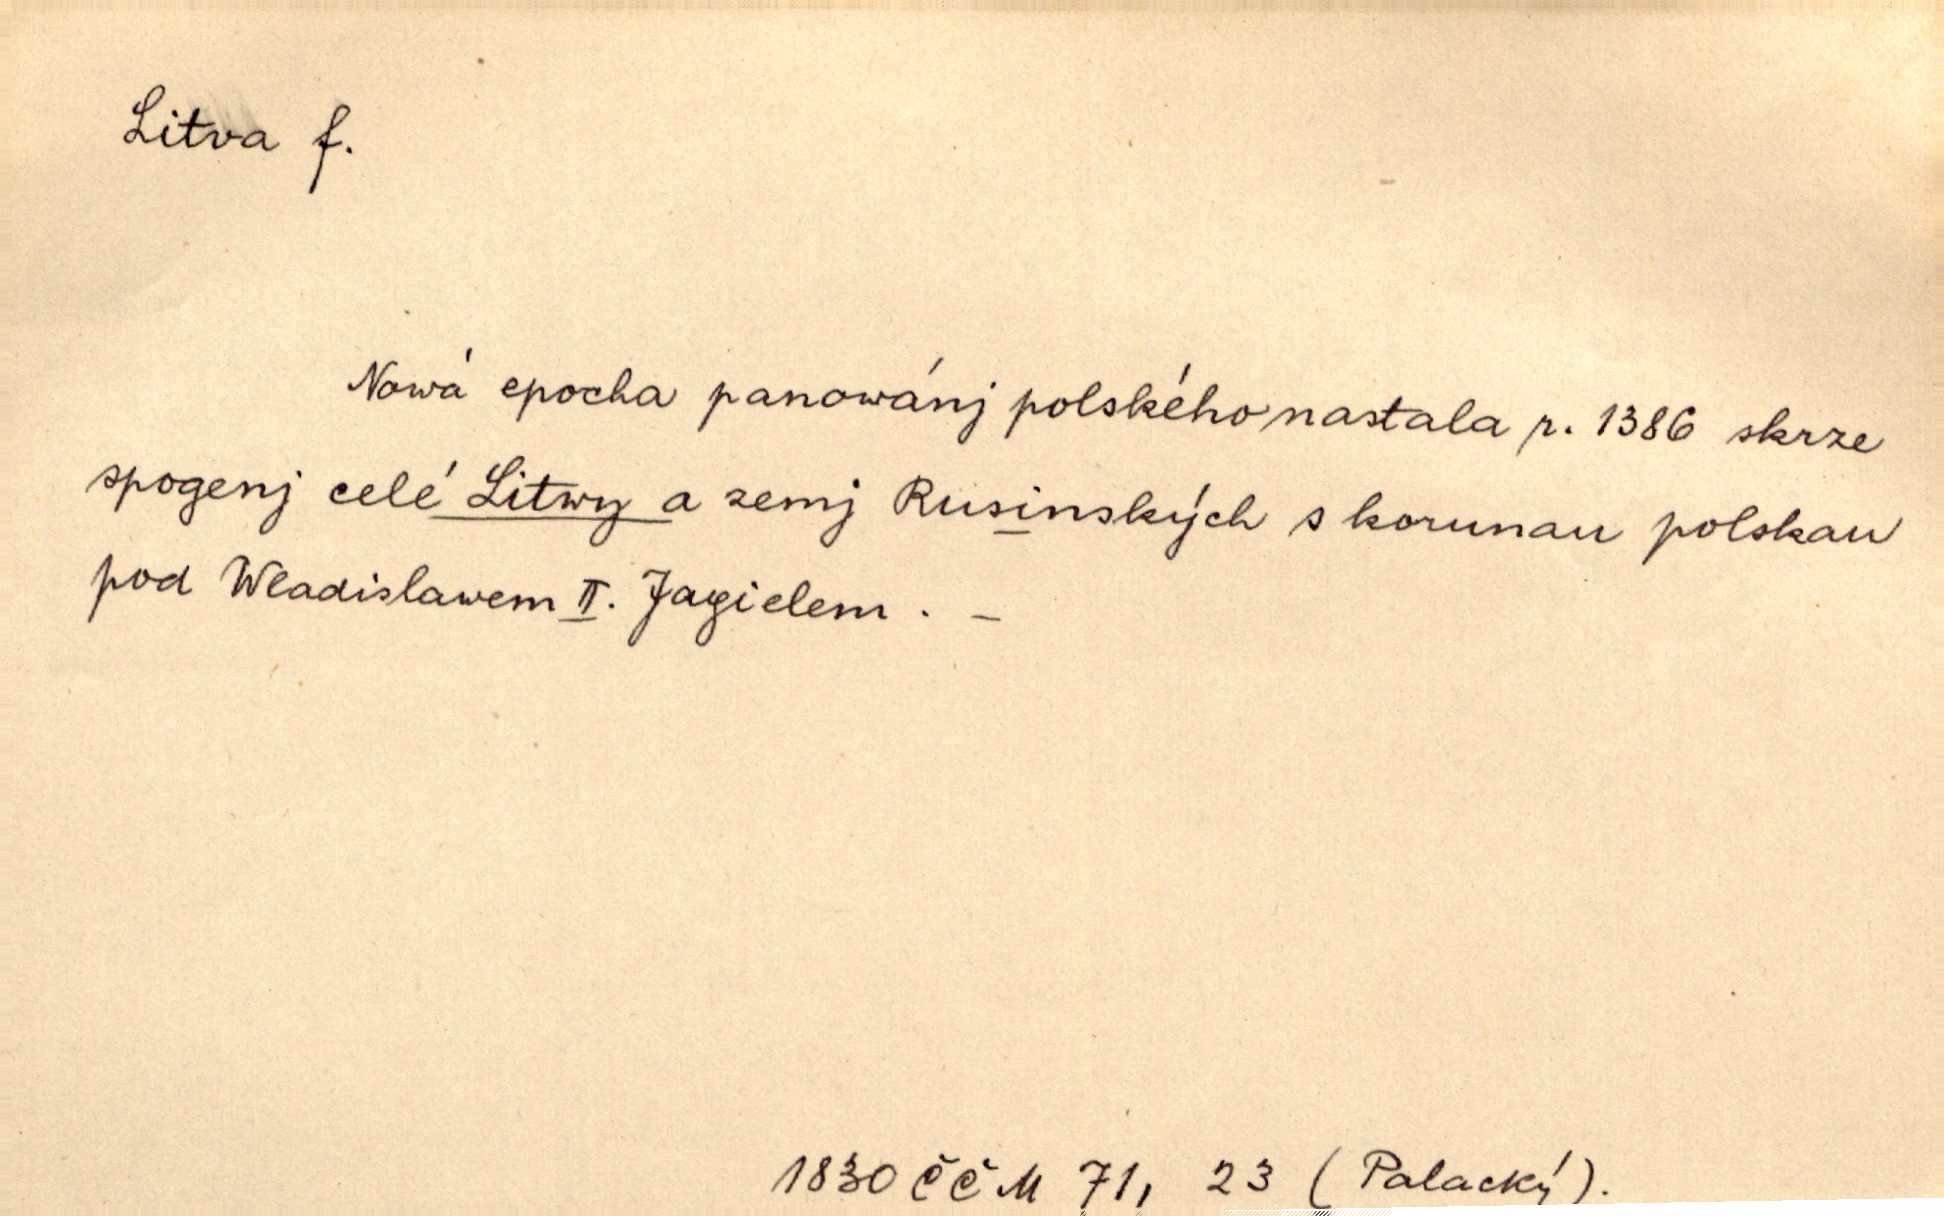 Litva f.
Nowá epocha panowánj polského nastala r. 1386 skrze
spogenj celé Litwy a zemj Rusinských s korunau polskau
pod Wladislawem II. Jagielem. –
1830 ČČM 71, 23 (Palacký).